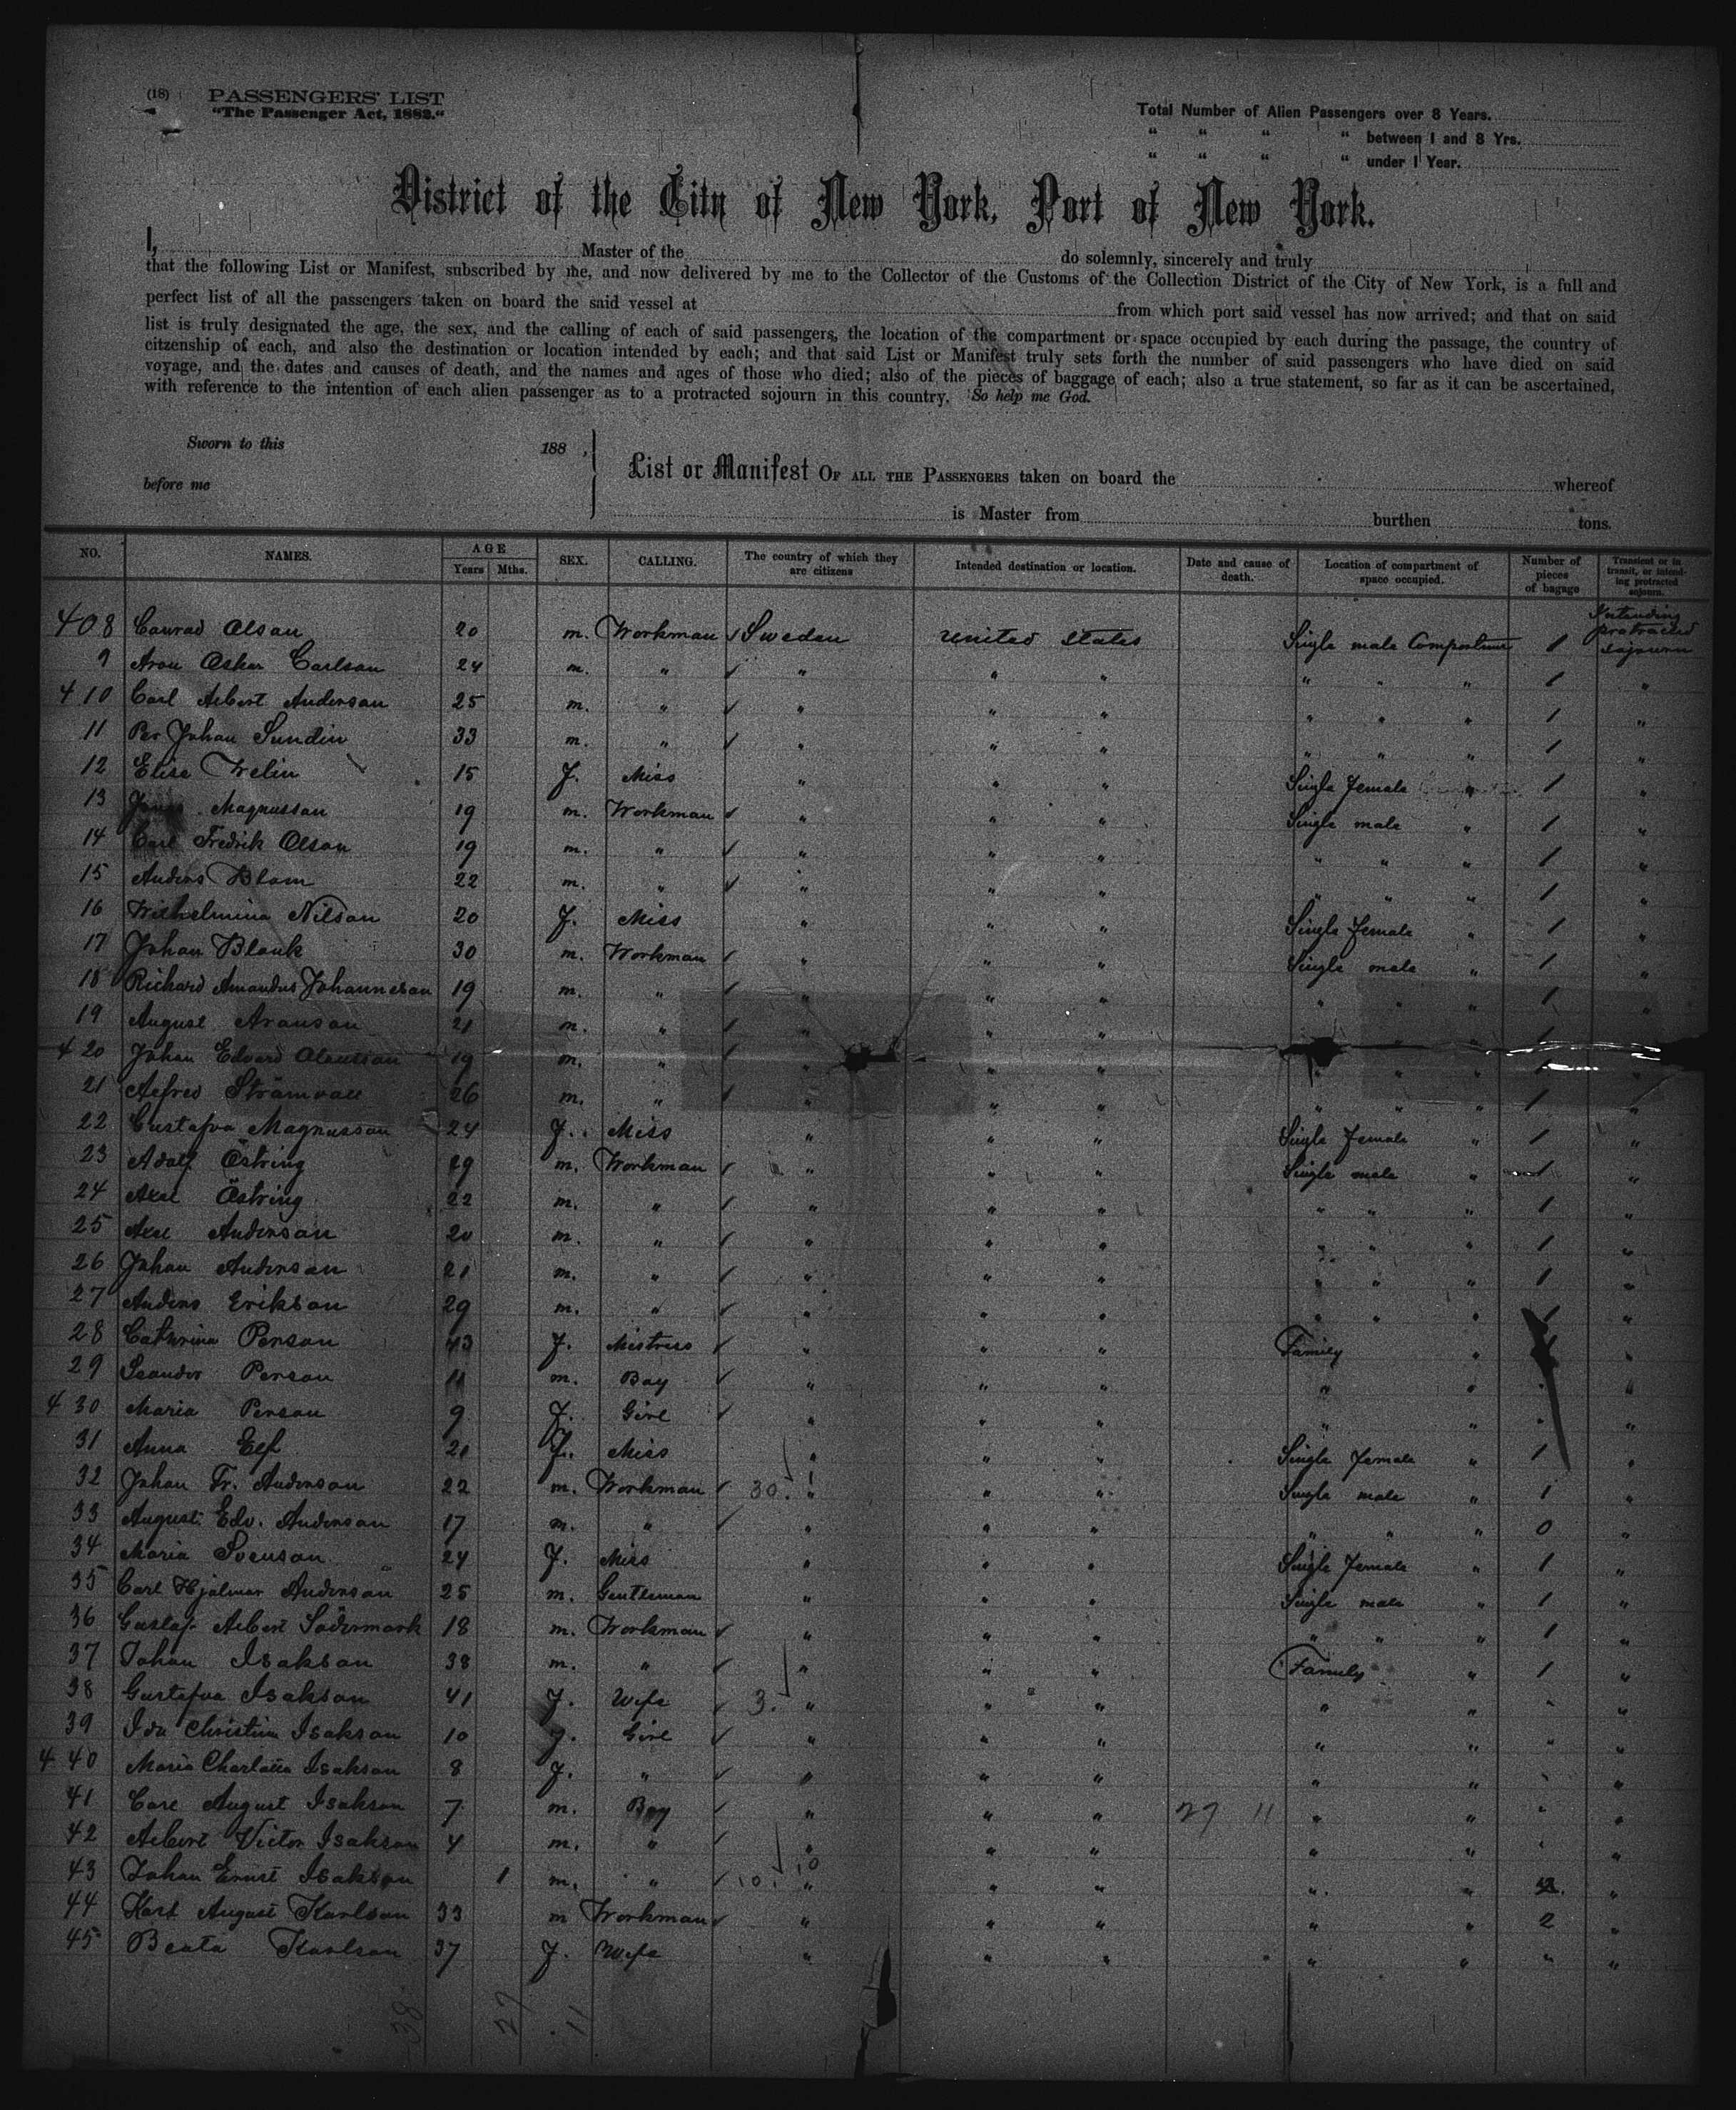 (18) PASSENGERS' LIST
"The Passenger Act, 1882."
Total Number of Alien Passengers over 8 Years.
" " " " between 1 and 8 Yrs.
" " " " under 1 Year.
District of the City of New York, Port of New York.
I, Master of the do solemnly, sincerely and truly
that the following List or Manifest, subscribed by me, and now delivered by me to the Collector of the Customs of the Collection District of the City of New York, is a full and
perfect list of all the passengers taken on board the said vessel at from which port said vessel has now arrived; and that on said
list is truly designated the age, the sex, and the calling of each of said passengers, the location of the compartment or space occupied by each during the passage, the country of
citzenship of each, and also the destination or location intended by each; and that said List or Manifest truly sets forth the number of said passengers who have died on said
voyage, and the dates and causes of death, and the names and ages of those who died; also of the pieces of baggage of each; also a true statement, so far as it can be ascertained,
with reference to the intention of each alien passenger as to a protracted sojourn in this country. So help me God.
Sworn to this 188 ,
before me
List or Manifest OF ALL THE PASSENGERS taken on board the whereof
is Master from burthen tons.
NO. NAMES. AGE Years Mths. SEX. CALLING. The country of which they are citizens Intended destination or location. Date and cause of death. Location of compartment of space occupied. Number of pieces of bagage Transient or in transit, or intending protracted sojourn.
408 Conrad Olson 20 m. Workman Sweden United States Single male Compartment 1 Intending protracted sojourn
9 Aron Oskar Carlson 24 m. " " " " " " " 1 "
410 Carl Albert Anderson 25 m. " " " " " " " 1 "
11 Per Johan Sundin 33 m. " " " " " " " 1 "
12 Elise Welin 15 f. Miss " " " Single female " 1 "
13 Jonas Magnusson 19 m. Workman " " " Single male " 1 "
14 Carl Fredrik Olson 19 m. " " " " " " " 1 "
15 Anders Blom 22 m. " " " " " " " 1 "
16 Wilhelmina Nilson 20 f. Miss " " " Single female " 1 "
17 Johan Blank 30 m. Workman " " " Single male " 1 "
18 Richard Amandus Johanneson 19 m. " " " " " " " 1 "
19 August Aronson 21 m. " " " " " " " 1 "
420 Johan Edvard 19 m. " " " " " " " 1 "
21 Alfred Strömvall 26 m. " " " " " " " 1 "
22 Gustafva Magnusson 24 f. Miss " " " Single female " 1 "
23 Adolf Östring 29 m. Workman " " " Single male " 1 "
24 Axel Östring 22 m. " " " " " " " 1 "
25 Axel Anderson 20 m. " " " " " " " 1 "
26 Johan Anderson 21 m. " " " " " " " 1 "
27 Anders Erikson 29 m. " " " " " " " 1 "
28 Cathrina Person 43 f. Mistress " " " Family " "
29 Leander Person 11 m. Boy " " " " " " "
430 Maria Person 9 f. Girl " " " " " " "
31 Anna Elf 21 f. Miss " " " Single female " 1 "
32 Johan Fr. Anderson 22 m. Workman 30. " " " Single male " 1 "
33 August Edv. Anderson 17 m. " " " " " " " 0 "
34 Maria Svenson 24 f. Miss " " " Single female " 1 "
35 Carl Hjalmar Anderson 25 m. Gentleman " " " Single male " 1 "
36 Gustaf Albert Södermark 18 m. Workman " " " " " " 1 "
37 Johan Isakson 38 m. " " " " Family " 1 "
38 Gustafva Isakson 41 f. Wife 3. " " " " " " "
39 Ida Christina Isakson 10 f. Girl " " " " " " "
440 Maria Charlotta Isakson 8 f. " " " " " " " "
41 Carl August Isakson 7 m. Boy " " " 27 11 " " " "
42 Albert Victor Isakson 4 m. " " " " " " " "
43 Johan Ernst Isakson 1 m. " 10. 10 " " " " " "
44 Karl August Karlson 33 m Workman " " " " " 2 "
45 Beata Karlson 37 f. Wife " " " " " " "
38 27 11